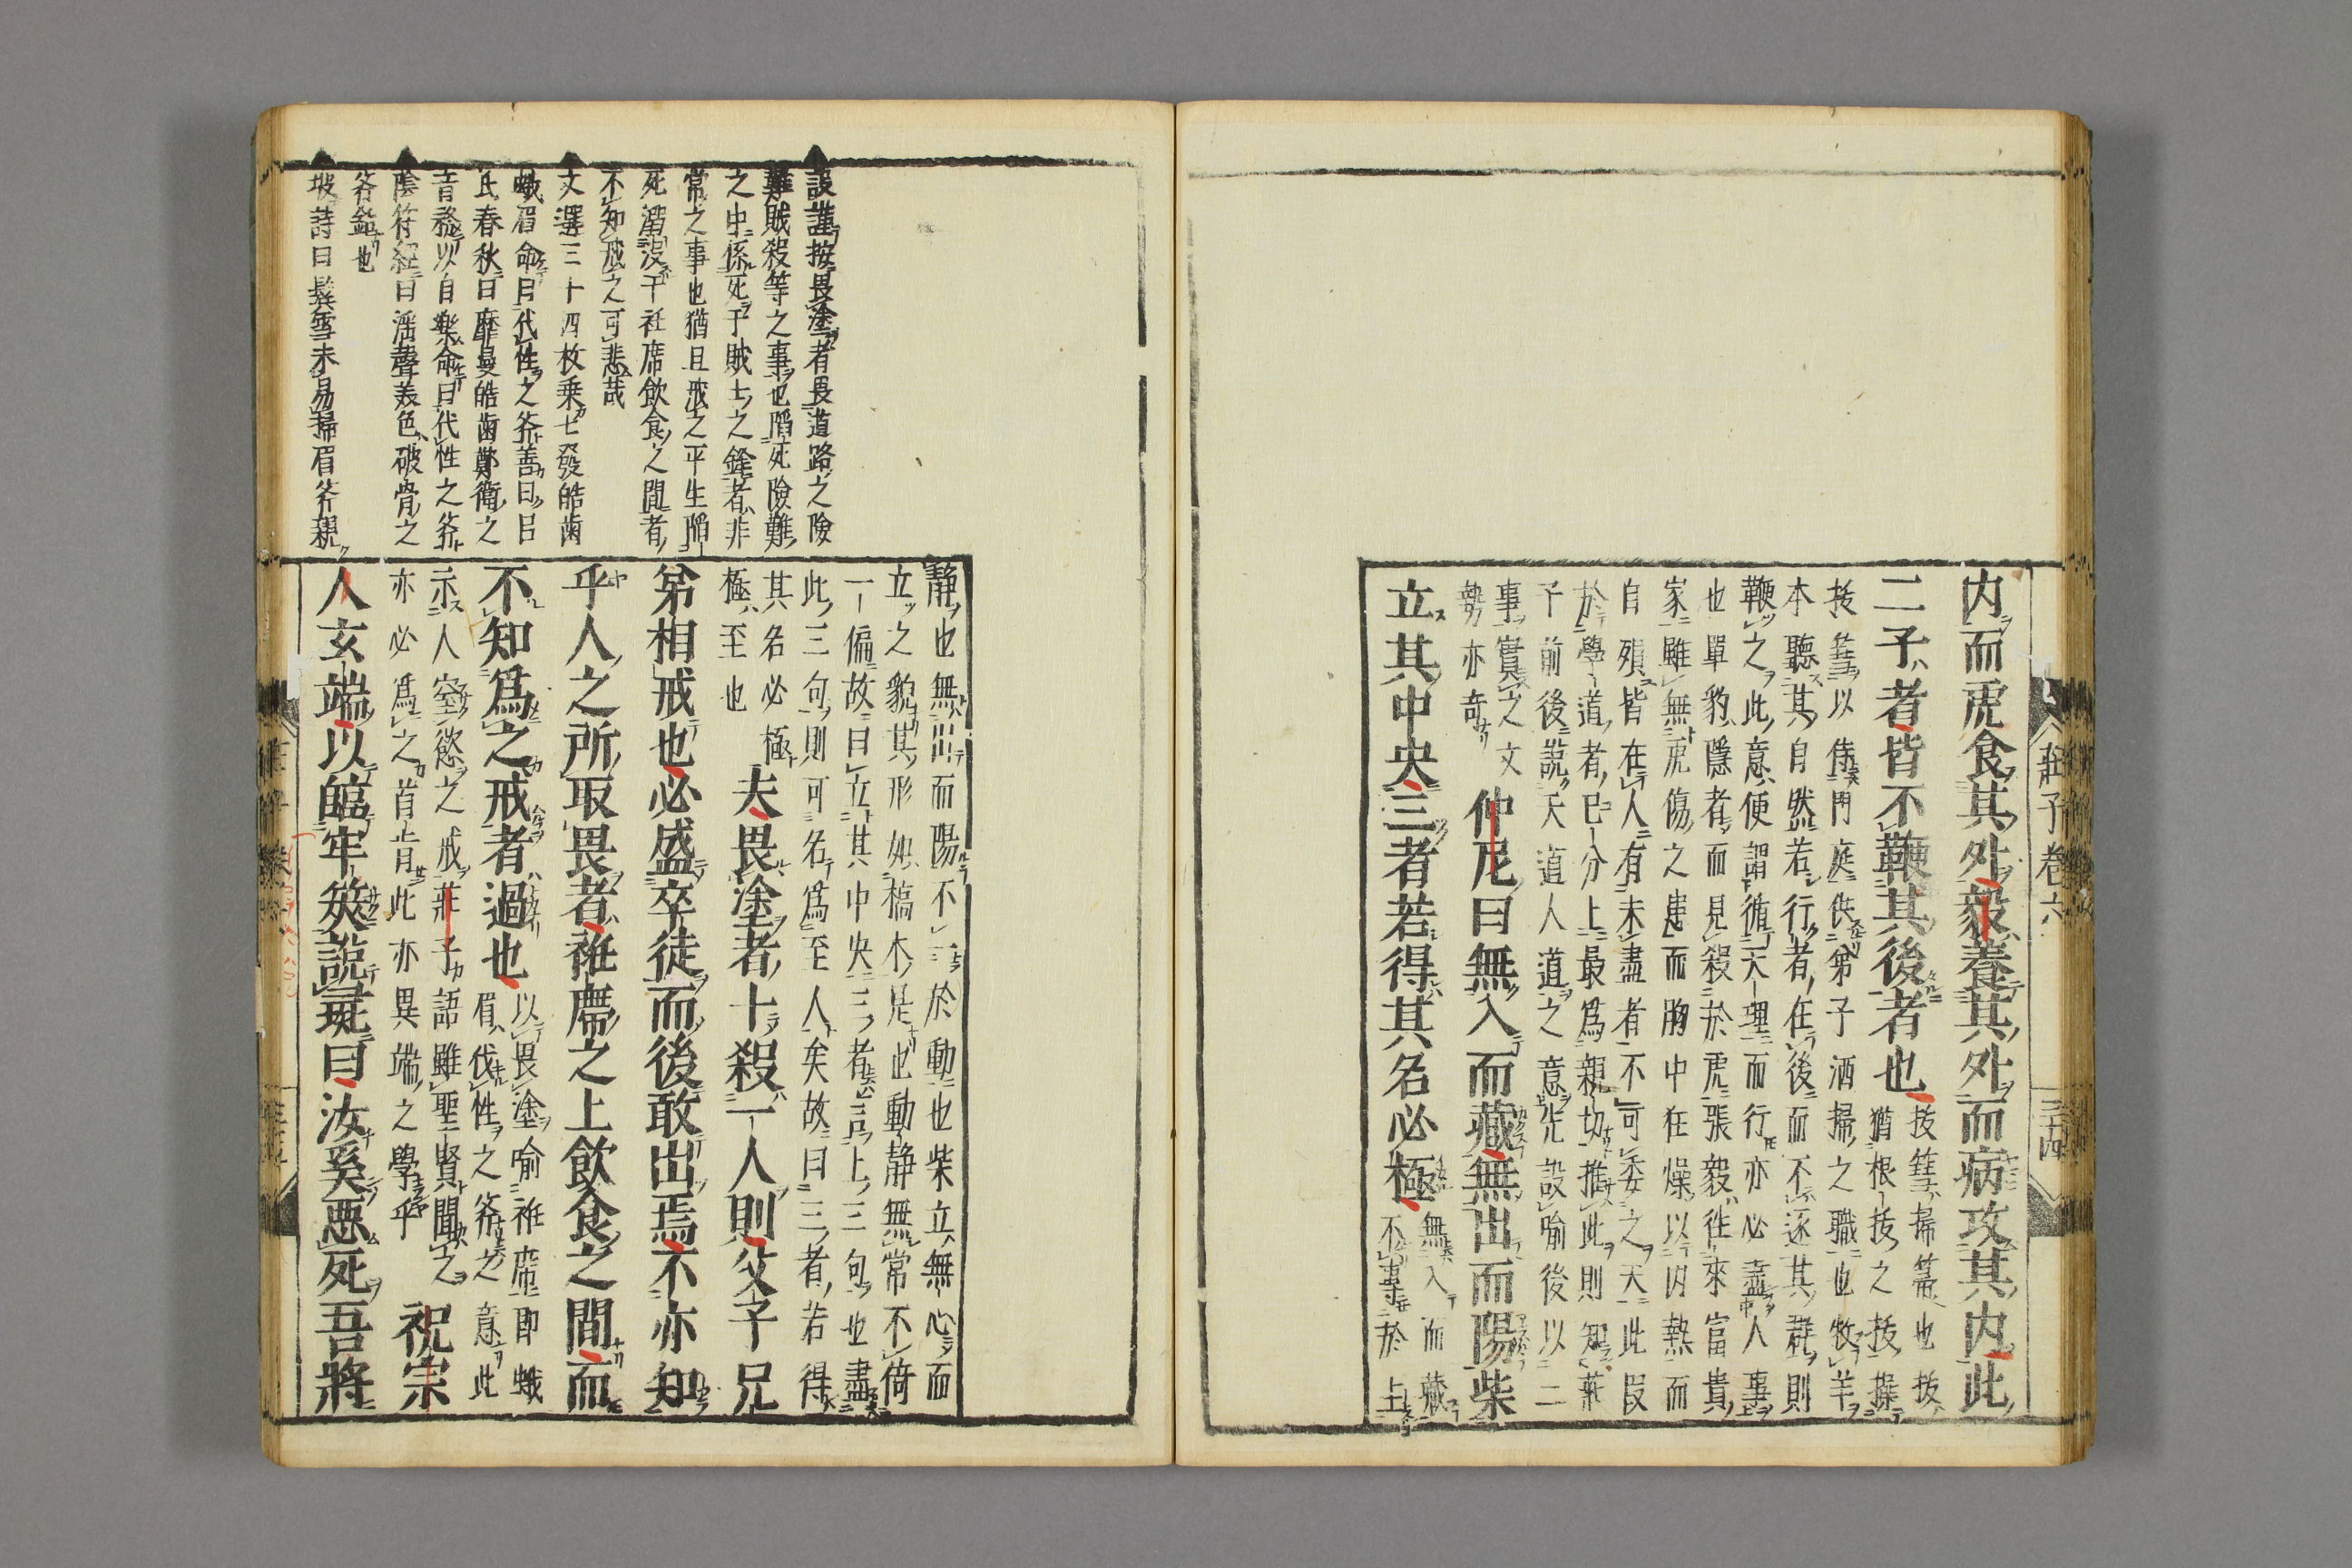 莊子卷六
三十四
内而虎食其外毅養其外而病攻其内此
二子者皆不鞭其後者也
拔篲掃箒也拔
猶根拔之拔操
拔篲以侍門庭供第子洒掃之職也牧羊
本聽其自然若行者在後而不逐其群則
鞭之此意便謂循天理而行亦必盡人事
也單豹隱者而見殺於虎張毅徃來富貴
家雖無虎傷之患而胸中狂燥以内熱而
自殞皆在人有未盡者不可委之天此段
於學道者已分上最爲親切推此則知莊
子前後說天道人道之意先設喻後以二
事實之文
勢亦奇
仲尼曰無入而藏無出而陽柴
立其中央三者若得其名必極
無入而藏
不專於
靜也無出而陽不於動也柴立無心而
立之貌其形如槁木是也動靜無常不倚
一偏故曰立其中央三者言上三句也盡
此三句則可名爲至人矣故曰三者若得
其名必極
極至也
夫畏塗者十殺一人則父子兄
第相戒也必盛卒徒而後敢出焉不亦知
乎人之所取畏者袵席之上飲食之間而
不知爲之戒者過也
以畏塗喻袵席即蛾
眉伐性之斧之意此
示人窒慾之戒莊子語雖聖賢聞之
亦必爲之首肯此亦異端之學乎
祝宗
人玄端以臨牢筴說彘曰汝奚惡死吾將
設謹按畏塗者畏道路之險
難賊殺等之事也陷死險難
之中係死于賊士之鋒者非
常之事也猶且戒之平生陷
死溺没于袵席飲食之間者
不知戒之可悲哉
文選三十四枚乗七發皓歯
蛾眉命曰代性之斧善曰吕
氏春秋曰靡曼皓歯鄭衛之
音務以自樂命曰代性之斧
陰符經曰滛聲美色破骨之
斧鋸也
坡詩曰鬓雪未易掃眉斧親